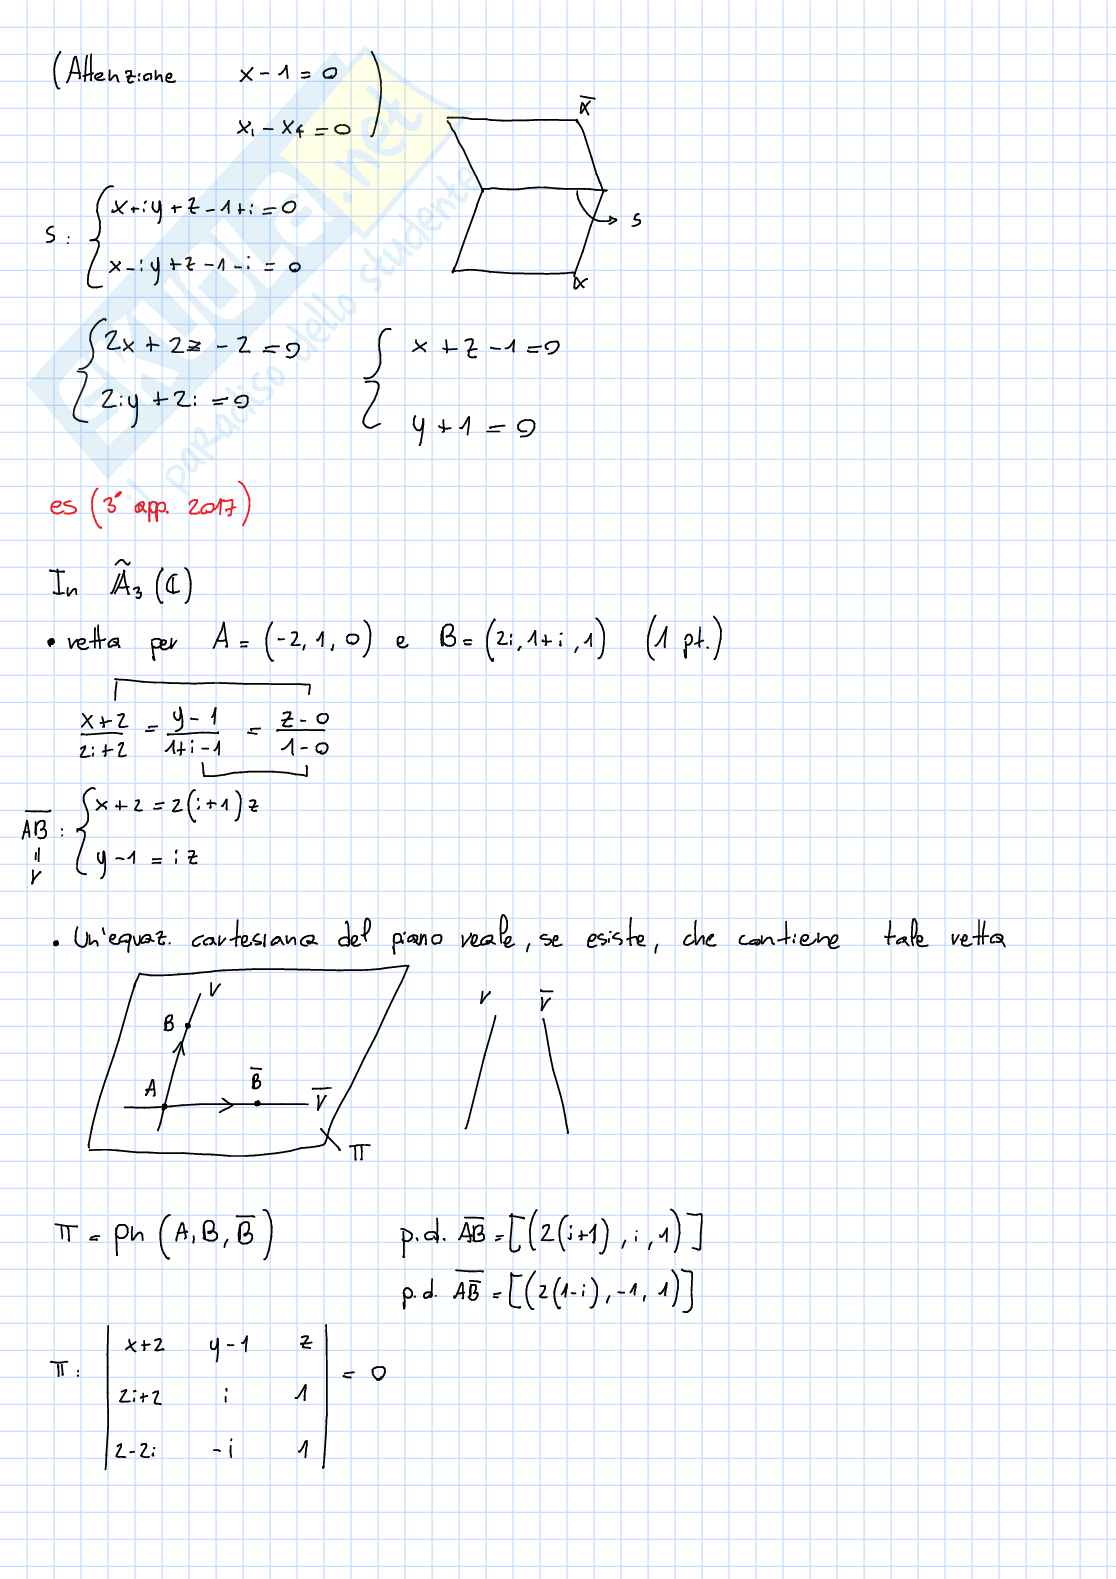 (Attenzione x - 1 = 0
x₁ - x₄ = 0)
s : { x + iy + z - 1 + i = 0
x - iy + z - 1 - i = 0
α̅
s
α
{ 2x + 2z - 2 = 0
2iy + 2i = 0
{ x + z - 1 = 0
y + 1 = 0
es (3° app. 2017)
In Ã₃ (ℂ)
• retta per A = (-2, 1, 0) e B = (2i, 1+i, 1) (1 pt.)
(x+2)/(2i+2) = (y-1)/(1+i-1) = (z-0)/(1-0)
A̅B̅ : { x + 2 = 2(i+1)z
y - 1 = iz
=
r
• Un'equaz. cartesiana del piano reale, se esiste, che contiene tale retta
r
B
A
B̅
r̅
π
r r̅
π = pn (A, B, B̅) p.d. A̅B̅ = [(2(i+1), i, 1)]
p.d. A̅B̅ = [(2(1-i), -1, 1)]
π : | x+2 y-1 z |
| 2i+2 i 1 | = 0
| 2-2i -i 1 |
SKUOLA.net
il paradiso dello studente